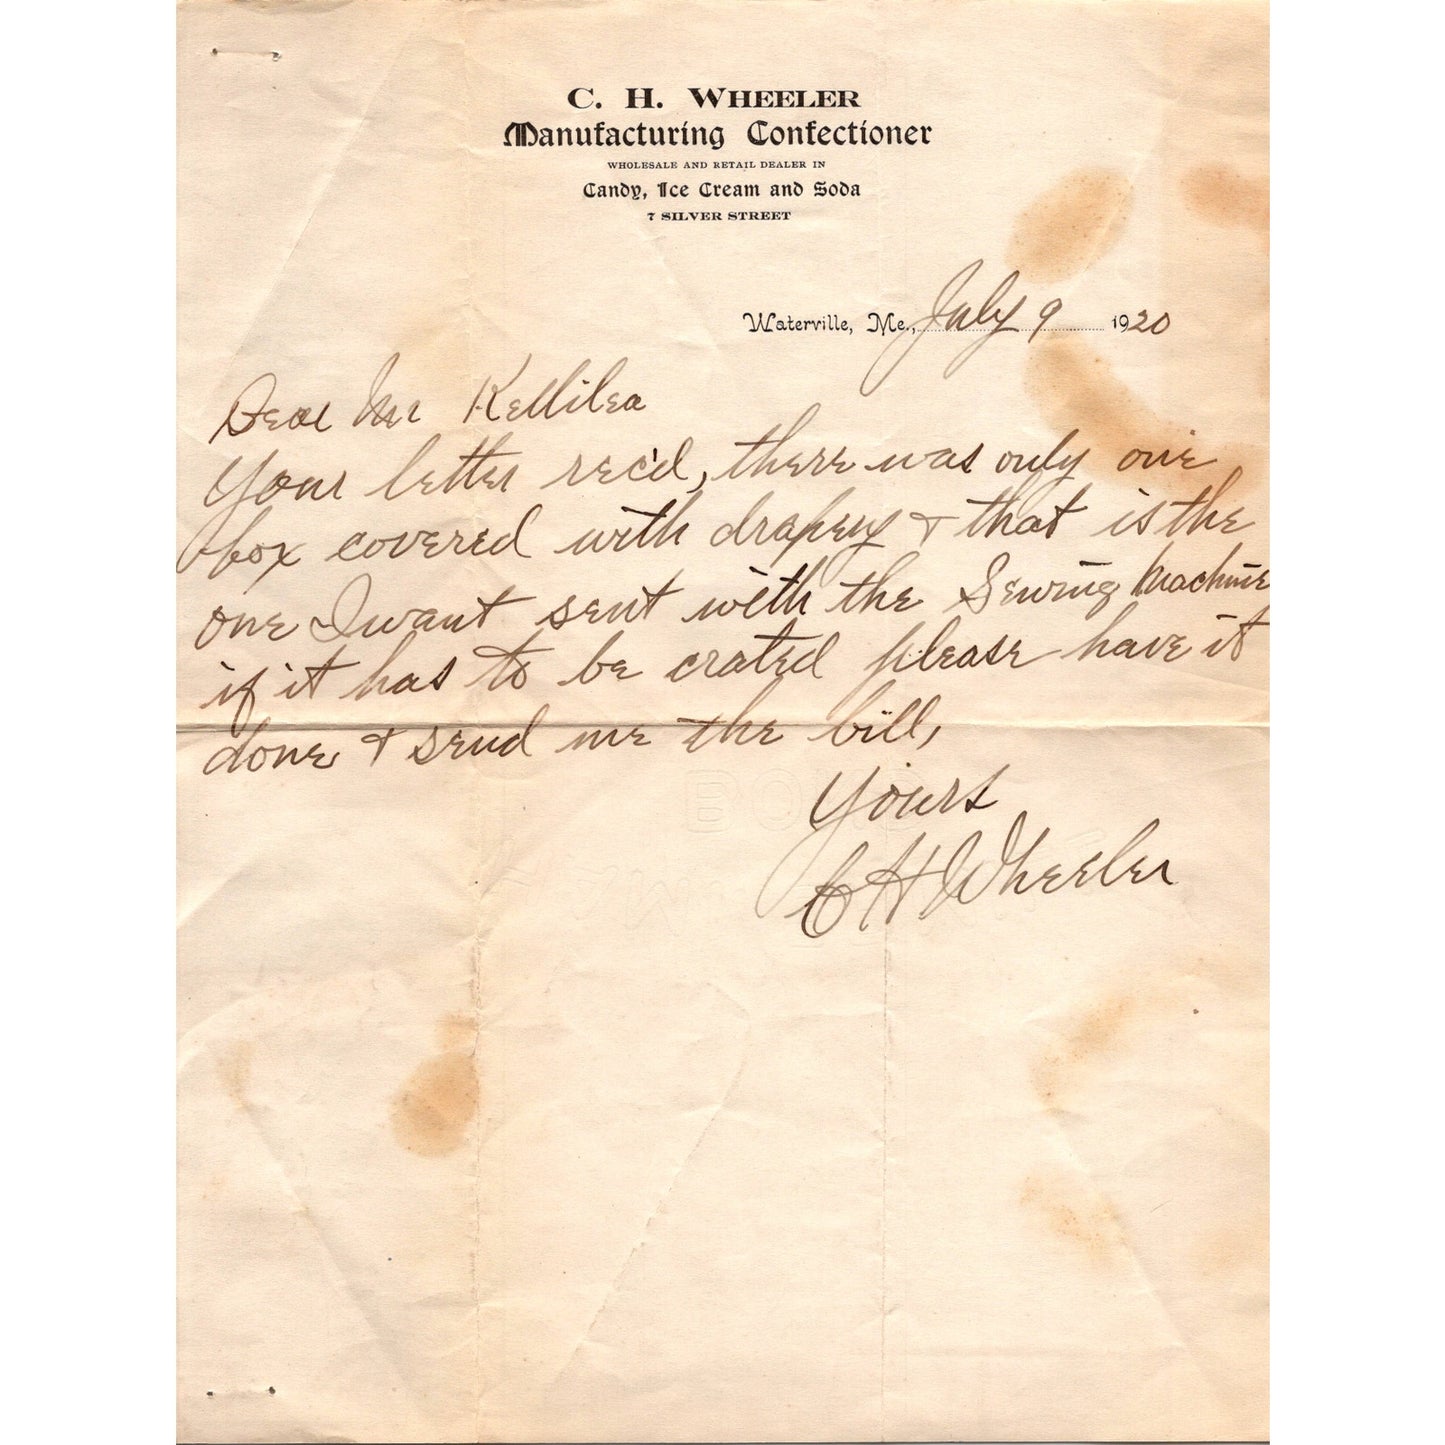 C. H. WHEELER
Manufacturing Confectioner
WHOLESALE AND RETAIL DEALER IN
Candy, Ice Cream and Soda
7 SILVER STREET
Waterville, Me., July 9 1920
Dear Mr Kellilea
Your letter rec'd, there was only one
box covered with drapery & that is the
one I want sent with the Sewing Machine
if it has to be crated please have it
done & send me the bill,
Yours
C H Wheeler
BOND